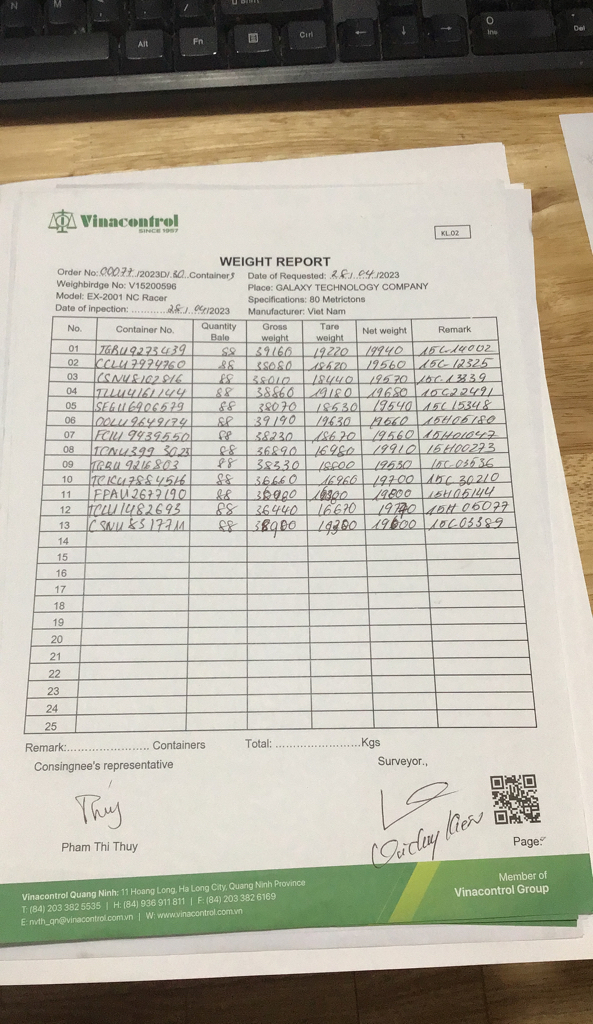 N
M
Alt
Fn
Ctrl
O
Ins
Del
Vinacontrol
SINCE 1957
KL.02
WEIGHT REPORT
Order No: 00077 /2023D/ 30 Containers Date of Requested: 28 / 04 /2023
Weighbirdge No: V15200596 Place: GALAXY TECHNOLOGY COMPANY
Model: EX-2001 NC Racer Specifications: 80 Metrictons
Date of inpection: ............ 28 / 04 /2023 Manufacturer: Viet Nam
No. Container No. Quantity Bale Gross weight Tare weight Net weight Remark
01 TGBU9273439 88 39160 19220 19940 15C-14002
02 CCLU7974760 88 38080 18520 19560 15C-12325
03 CSNU8102816 88 38010 18440 19570 15C-13339
04 TLLU4161144 88 38860 19180 19680 15C22491
05 SEGU6906579 88 38070 18530 19540 15C15348
06 OOLU9649174 88 39190 19630 19560 15H05180
07 FCIU9439550 88 38230 18670 19560 15H01047
08 88 36890 16980 19910 15H00273
09 TGBU9216803 88 38330 19530 15C-03536
10 TCKU7884516 88 36660 16960 19700 15C-30210
11 FPAU2677190 88 19800 15H05144
12 TCLU1482693 88 36440 16670 15H 05077
13 88 15C03389
14
15
16
17
18
19
20
21
22
23
24
25
Remark:........................ Containers Total: .........................Kgs
Consingnee's representative Surveyor.,
Thuý
Pham Thi Thuy
Page:
Vinacontrol Quang Ninh: 11 Hoang Long, Ha Long City, Quang Ninh Province
T: (84) 203 382 5535 | H: (84) 936 911 811 | F: (84) 203 382 6169
E: nvth_qn@vinacontrol.com.vn | W: www.vinacontrol.com.vn
Member of
Vinacontrol Group